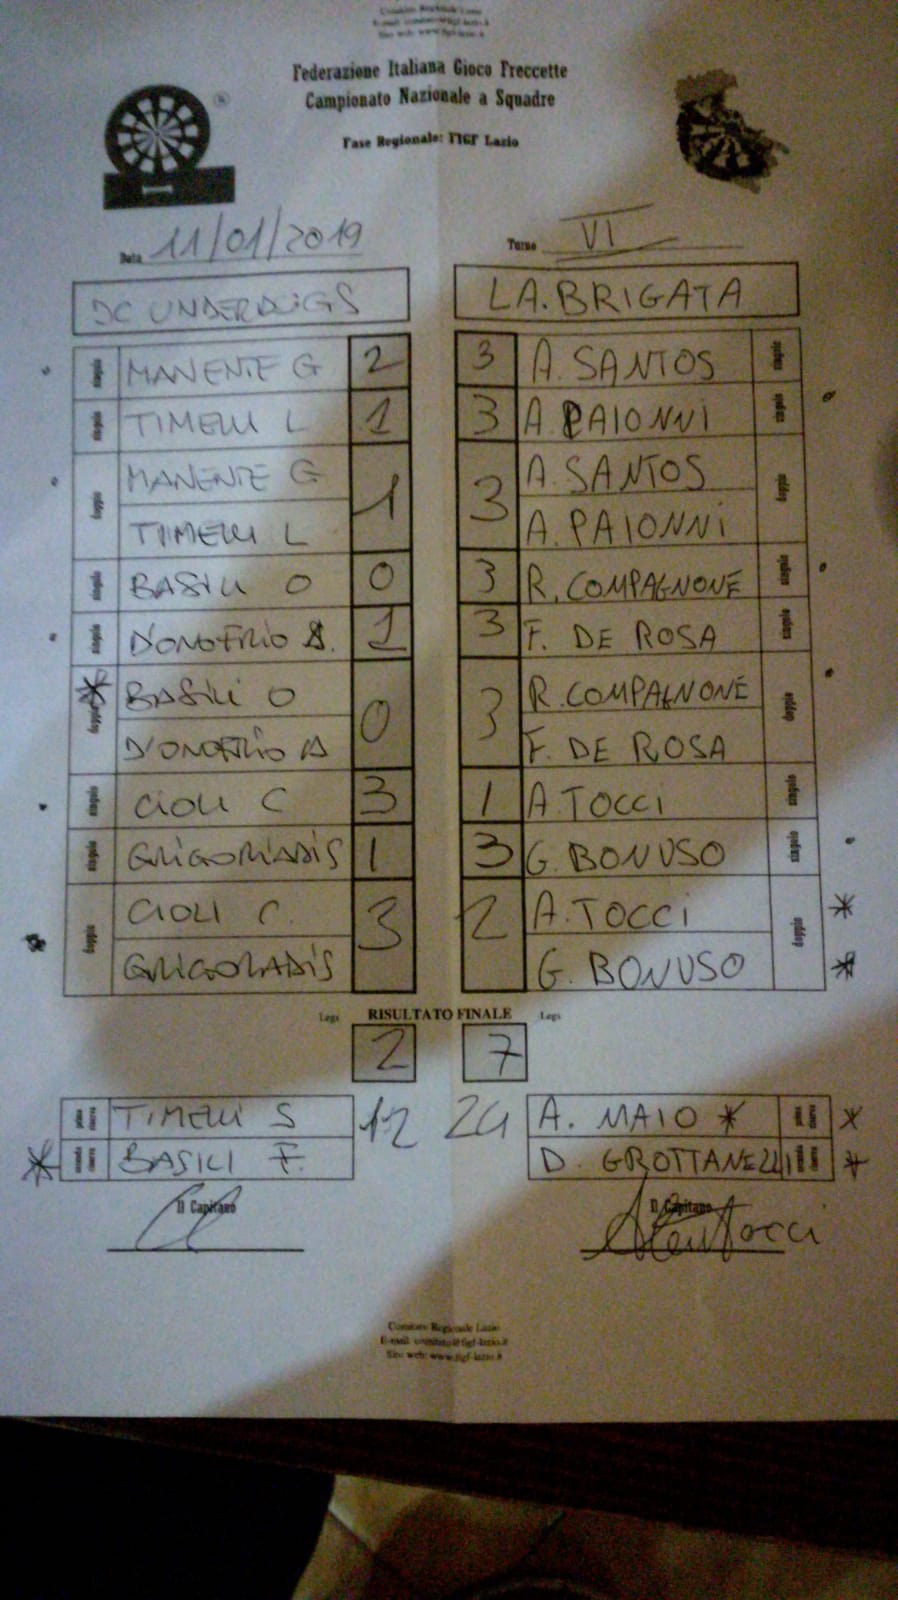 Comitato Regionale Lazio
E-mail: comitato@figf-lazio.it
Sito web: www.figf-lazio.it
Federazione Italiana Gioco Freccette
Campionato Nazionale a Squadre
Fase Regionale: FIGF Lazio
Data 11/01/2019 Turno VI
DC UNDERDOGS LA.BRIGATA
singolo MANENTE G 2 3 A. SANTOS singolo
singolo TIMELLI L 1 3 A. PAIONNI singolo
MANENTE G A. SANTOS
doppio 1 3 doppio
TIMELLI L A. PAIONNI
singolo BASILI O 0 3 R. COMPAGNONE singolo
singolo D'ONOFRIO A. 1 3 F. DE ROSA singolo
* BASILI O R. COMPAGNONE
doppio 0 3 doppio
D'ONOFRIO A F. DE ROSA
singolo CIOLI C 3 1 A. TOCCI singolo
singolo GRIGORIADIS 1 3 G. BONUSO singolo
CIOLI C. A. TOCCI *
doppio 3 2 doppio
GRIGORIADIS G. BONUSO *
Legs RISULTATO FINALE Legs
2 7
prima riserva TIMELLI S 12 24 A. MAIO * prima riserva *
* seconda riserva BASILI F. D. GROTTANELLI seconda riserva *
Il Capitano Il Capitano
Comitato Regionale Lazio
E-mail: comitato@figf-lazio.it
Sito web: www.figf-lazio.it